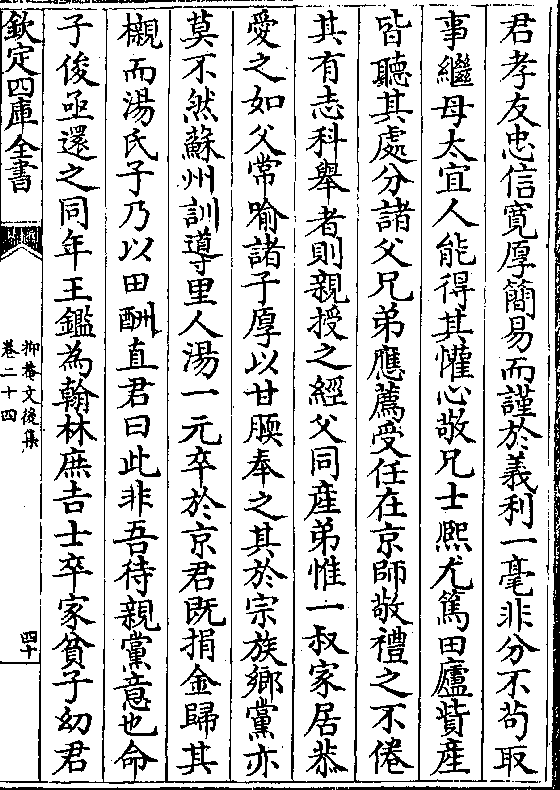 君孝友忠信寛厚簡易而謹於義利一毫非分不茍取
事繼母太宜人能得其懽心敬兄士熈尤篤田廬貲産
皆聽其處分諸父兄弟應薦受任在京師敬禮之不倦
其有志科舉者則親授之經父同産弟惟一叔家居恭
愛之如父常喻諸子厚以甘腴奉之其於宗族鄉黨亦
莫不然蘇州訓導里人湯一元卒於京君既捐金歸其
櫬而湯氏子乃以田酬直君曰此非吾待親黨意也命
子俊亟還之同年王鑑為翰林庶吉士卒家貧子幼君
欽定四庫全書
抑菴文後集
卷二十四
四十